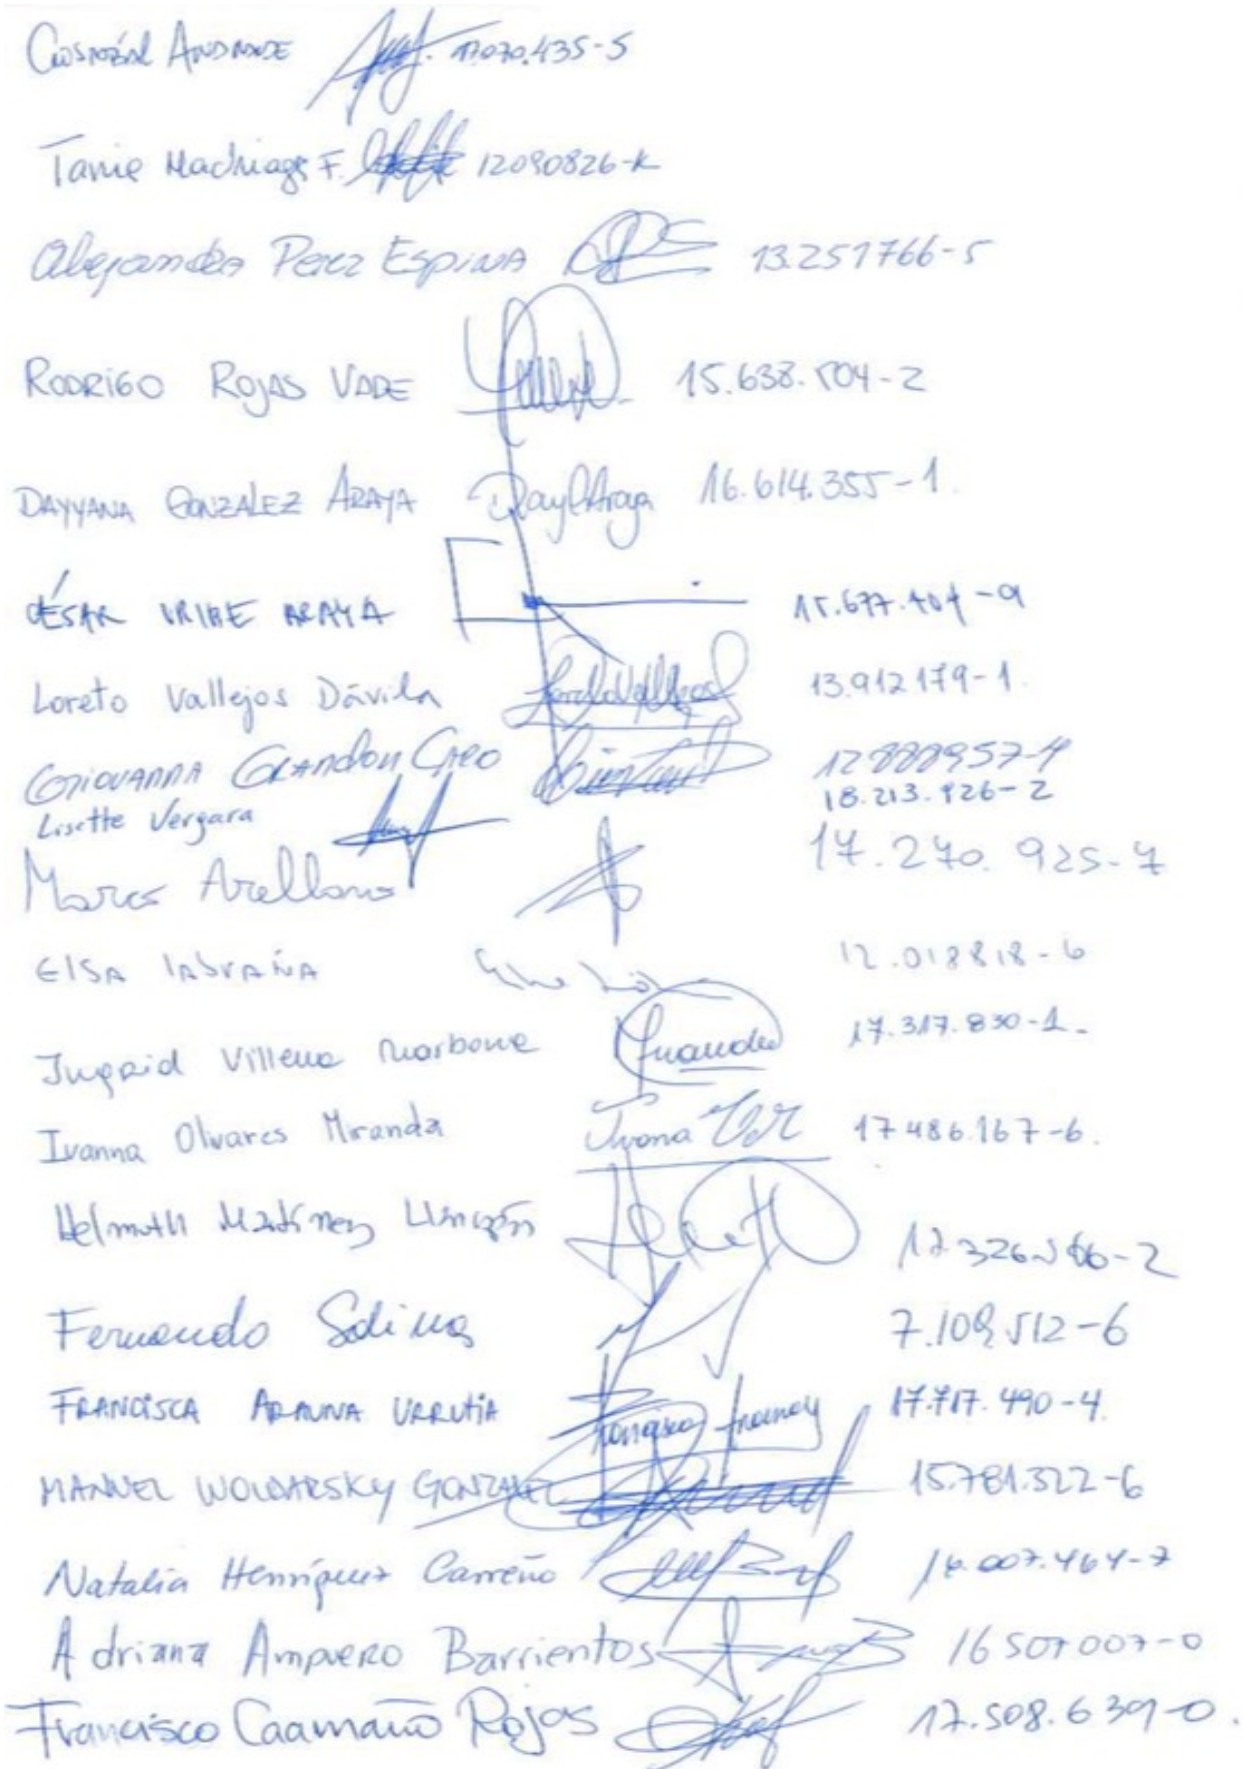 Cristóbal Andrade 17.070.435-5
Tania Madriaga F. 12090826-K
Alejandra Perez Espina 13.251766-5
RODRIGO ROJAS VADE 15.638.504-2
DAYYANA GONZALEZ ARAYA DayGAraya 16.614.355-1.
CÉSAR URIBE ARAYA 15.677.404-9
Loreto Vallejos Dávila LoretoVallejos 13.912179-1.
GIOVANNA GRANDON CARO 12888957-4
Lisette Vergara 18.213.926-2
Marco Arellano 17.270.925-7
ElSA lABRAÑA 12.018818-6
Ingrid Villena Narbona 17.317.830-1.
Ivanna Olivares Miranda Ivana 17486.167-6.
Helmuth Martinez Llancapán 17.326-2
Fernando Salinas 7.109.512-6
FRANCISCA ARAUNA URRUTIA Francisca Arauna 17.717.490-4.
MANUEL WOLDARSKY GONZALEZ 15.781.522-6
Natalia Henríquez Carreño 16.007.464-7
Adriana Ampuero Barrientos 16507007-0
Francisco Caamaño Rojas 17.508.639-0.